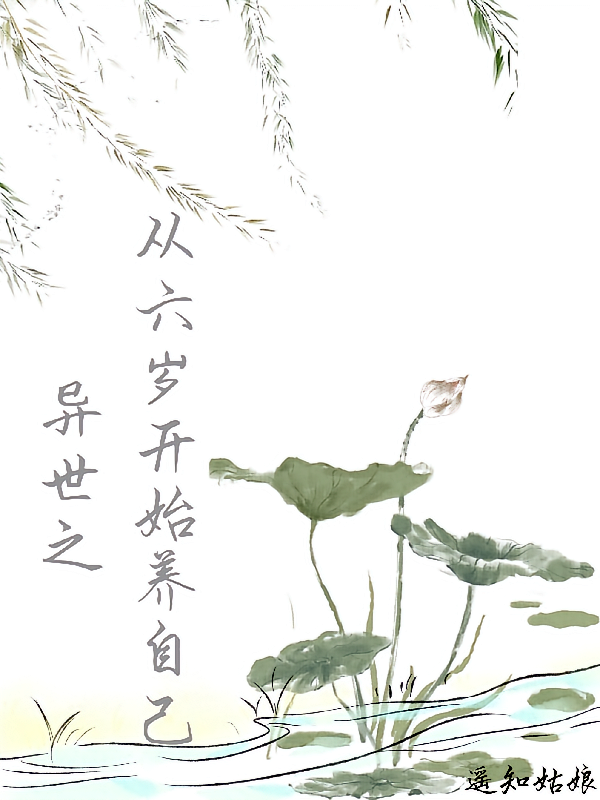 异世之
从六岁开始养自己
遥知姑娘